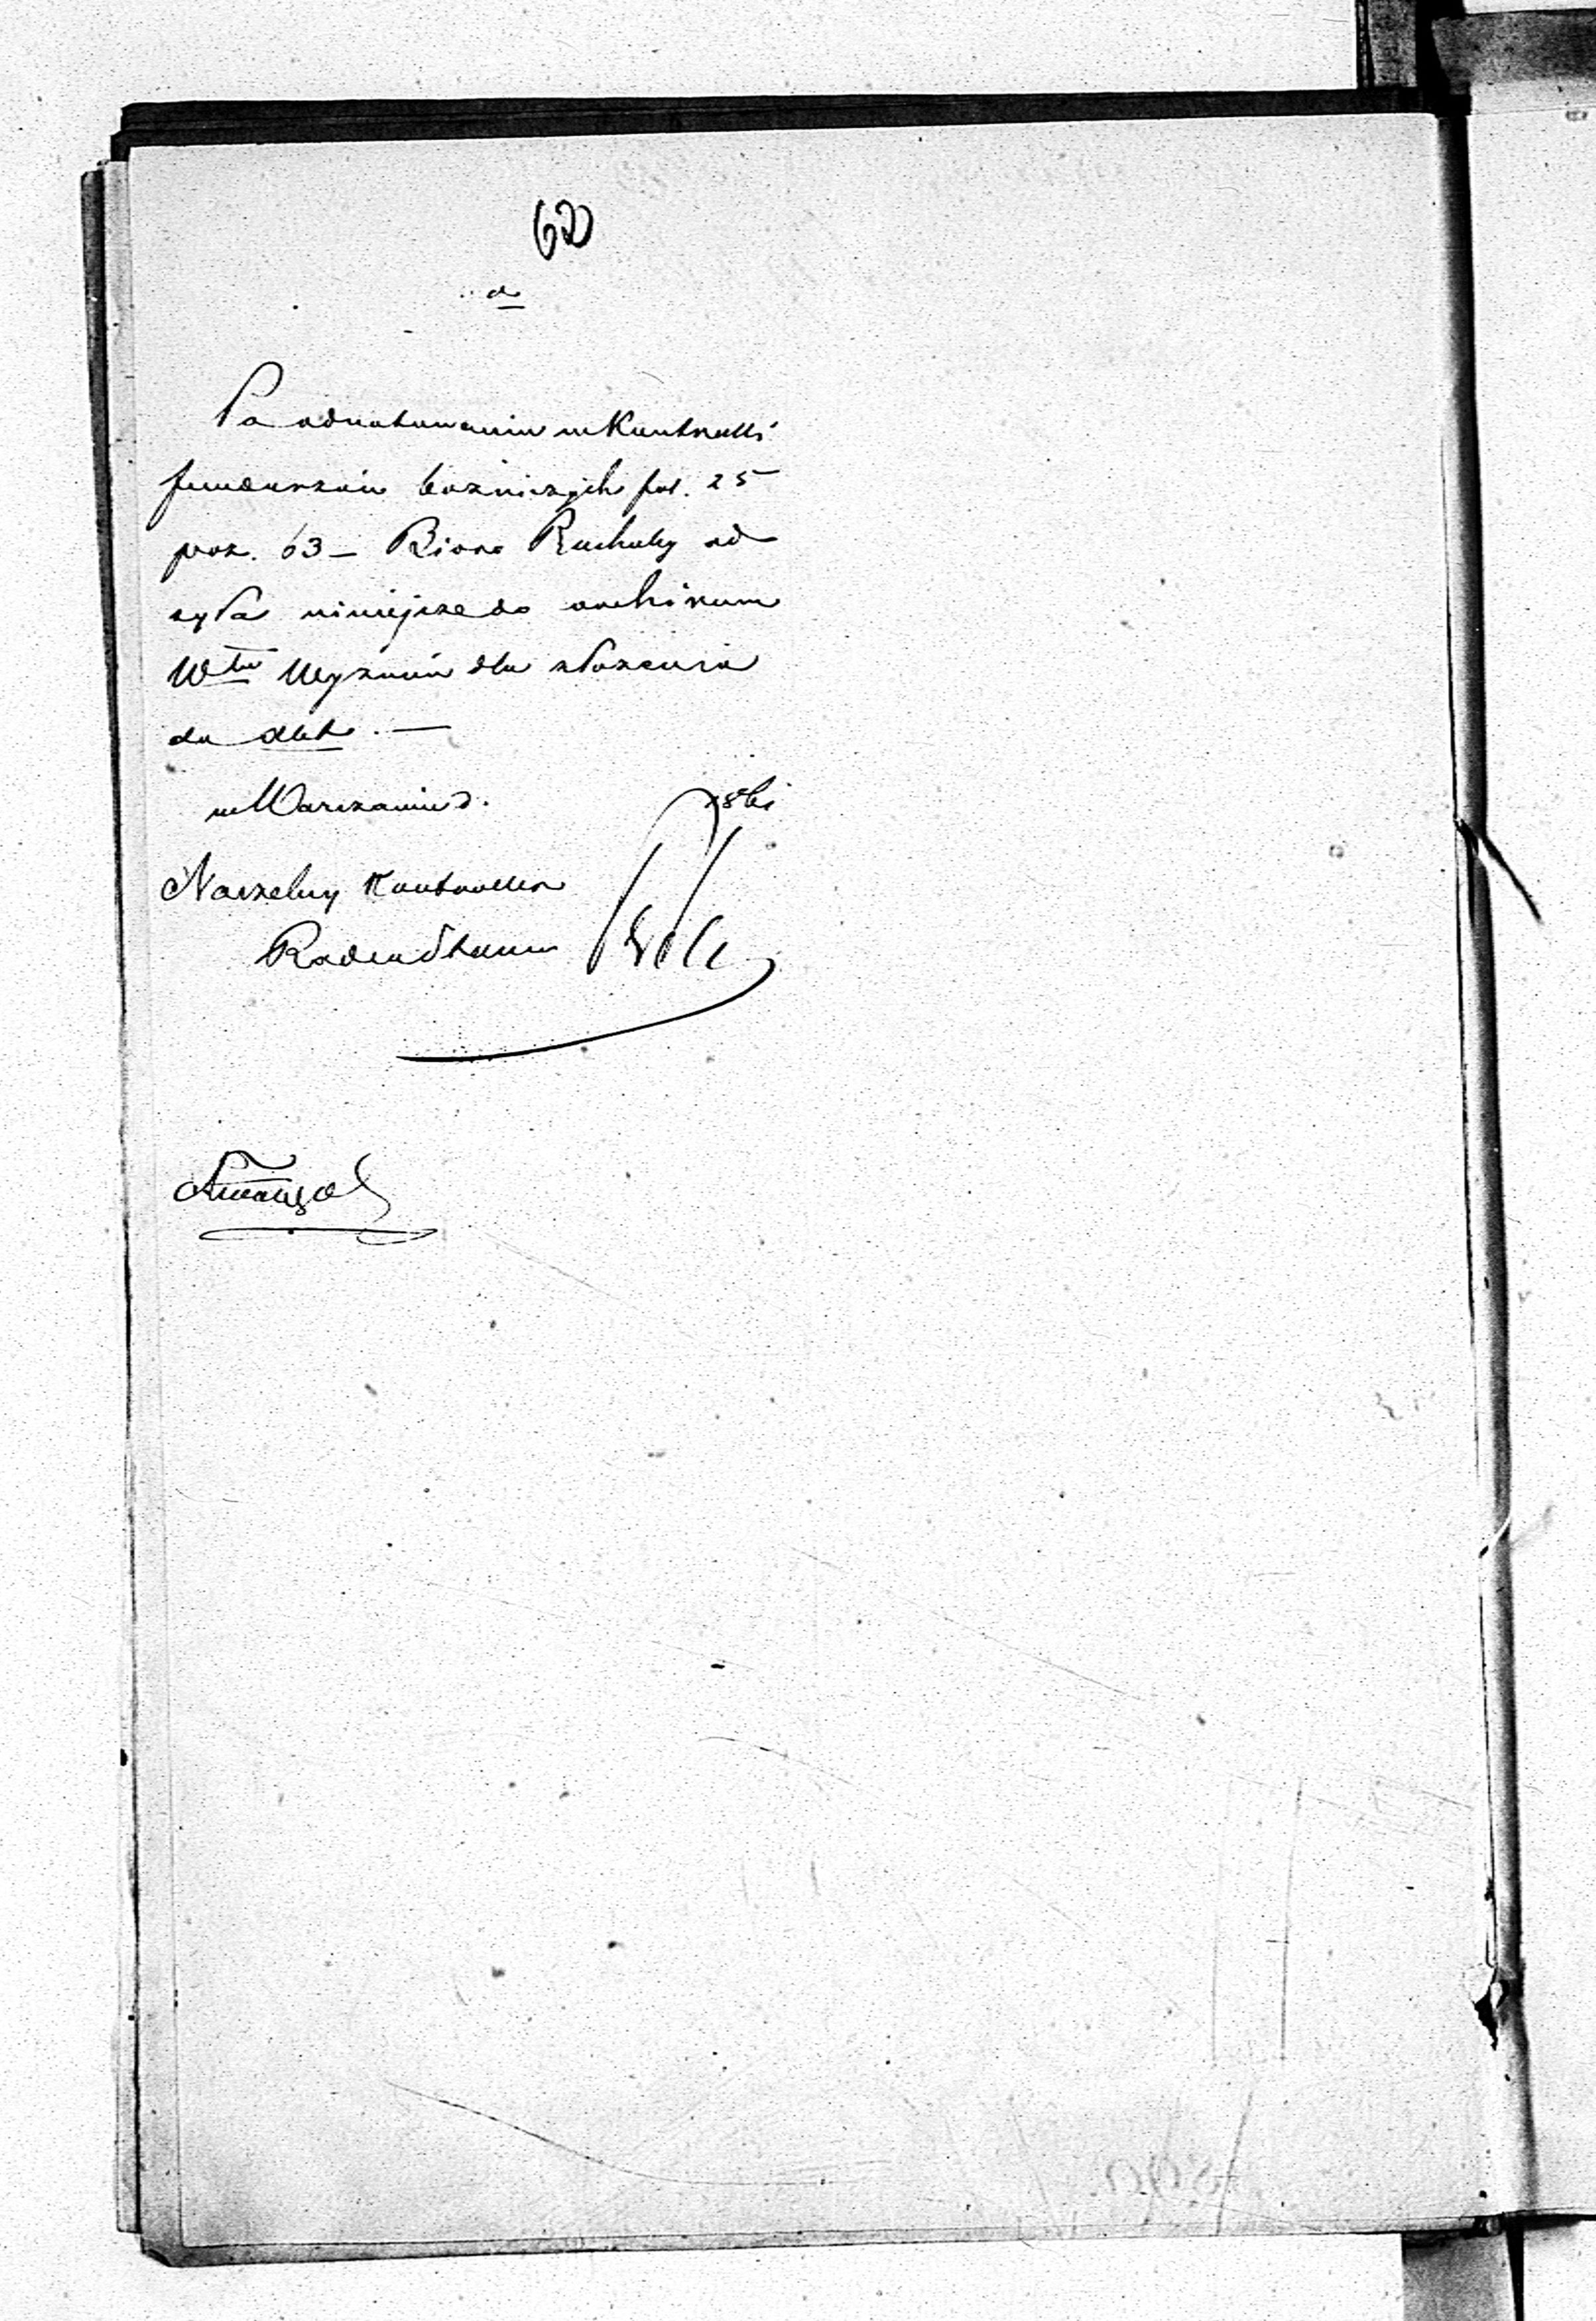 62
Po odnotowaniu w Kontrolli
funduszów bożniczych fol. 25
poz. 63 – Biuro Rachuby od
syła niniejsze do archiwum
Włu Wyznań dla złożenia
do akt. —
w Warszawie d.
Naczelny Kontroller
Radca Stanu